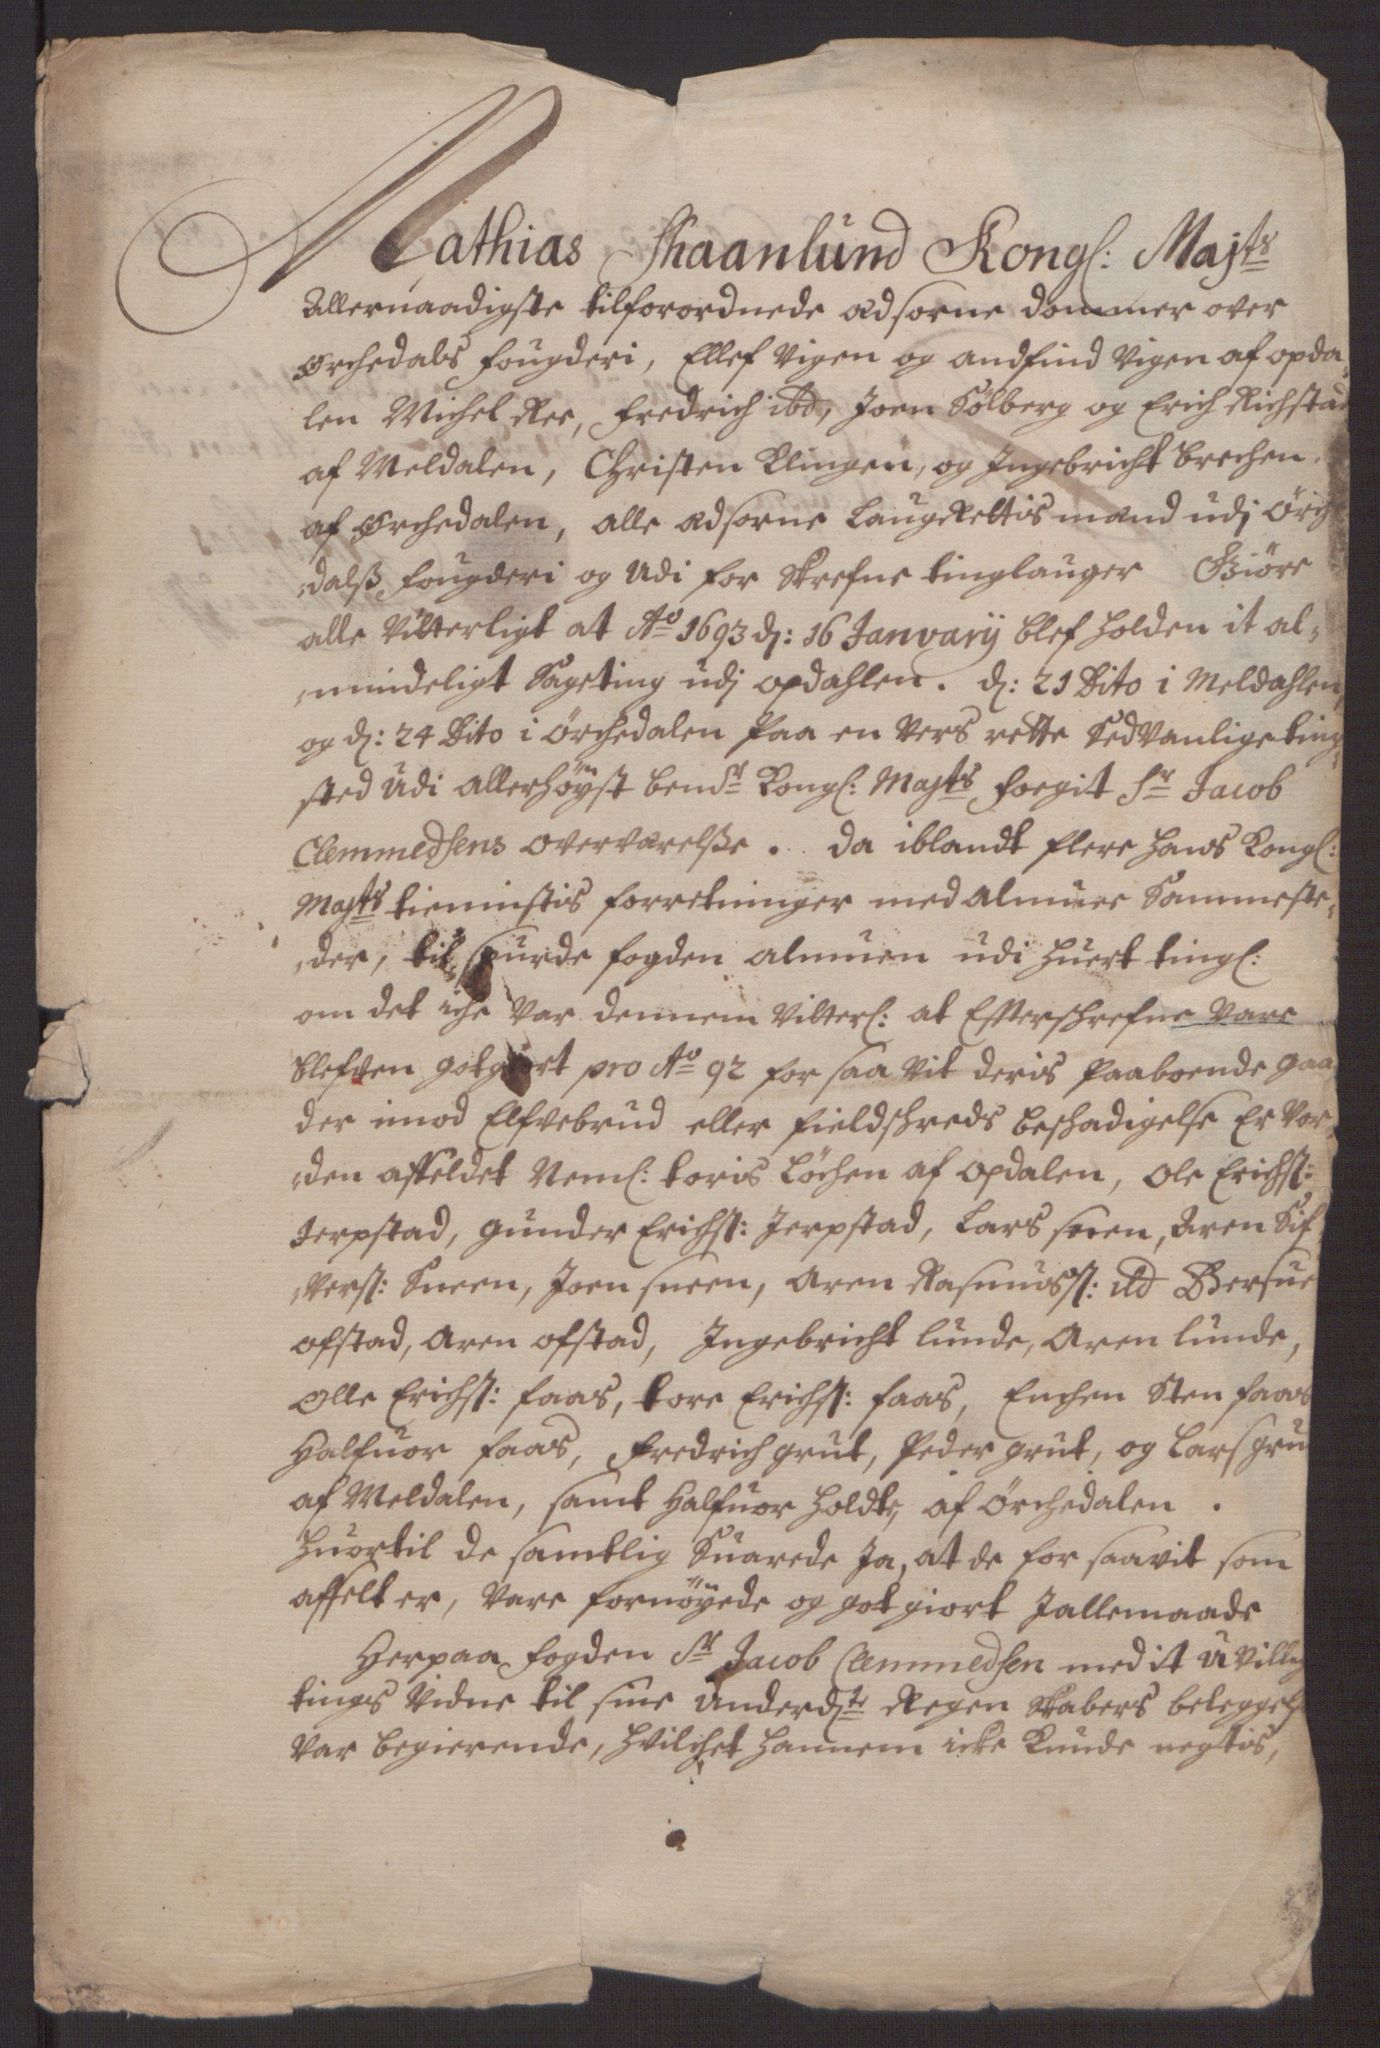 Mathias Skaanlund Kongl: Majts
Allernaadigste tilforordnede Edsorne dommer over
Ørchedals fougderi, Ellef Vigen og Andfind Vigen af opda-
len Michel Ree, Fredrich ibd, Joen Sølberg og Erich Richstad
af Meldalen, Christen Klingen, og Ingebricht Brechen
af Ørchedalen, alle Edsorne LaugRettis mænd udj Ørche
dalß fougderi og Udi for Skrefne tinglauger Giøre
alle Vitterligt at Ao 1693 d: 16 Januarij blef holden it al-
mindeligt Sageting udj opdahlen. d: 21 Dito i Meldahlen,
og d: 24 Dito i Ørchedalen Paa en Vers rette SedVanlige ting-
sted Udi allerhøyst bemte Kongl: Majts foegit Sr Jacob
Clemmedsens overværelße. da iblandt flere Hans Kongl:
Majts tiennistis forretninger med almuee Sammeste-
der, til spurde fogden almuen udi huert tingl:
om det iche Var dennem Vitterl: at Efterschrefne Vare
blefven gotgiort pro Ao 92 for saa vit deris Paaboende gaa
der imod Elfvebrud eller fieldschreds beschadigelse Er Vor-
den affeldet Neml: toris Løchen af opdalen, Ole Erichs:
Jerpstad, Gunder Erichs: Jerpstad, Lars sneen, Aren Sif
vers: Sneen, Joen sneen, Aren Rasmuss: ibd Bersue
ofstad, Aren ofstad, Ingebricht lunde, Aren lunde,
Olle Erichs: faas, tore Erichs: faas, Enchen Sten faas
Halfuor faas, Fredrich grut, Peder grut, og Lars gru
af Meldalen, samt Halfuor Holdte, af Ørchedalen.
Huortil de samtlig Suarede Ja, at de for saavit som
affelt er, Vare fornøyede og gotgiort Jallemaade
Herpaa fogden Sr Jacob Clemmedsen med it uvillig
tings Vidne til sine underd:te Regen Skabers beleggels
Var begierende, hvilchet hannem icke Kunde negtis,